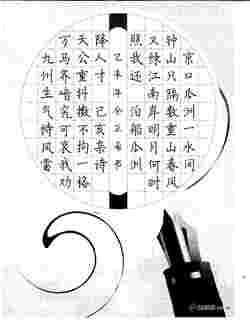 京口瓜洲一水间
钟山只隔数重山春风
又绿江南岸明月何时
照我还 泊船瓜洲
降人才 己亥杂诗
天公重抖擞不拘一格
万马齐喑究可哀我劝
九州生气恃风雷